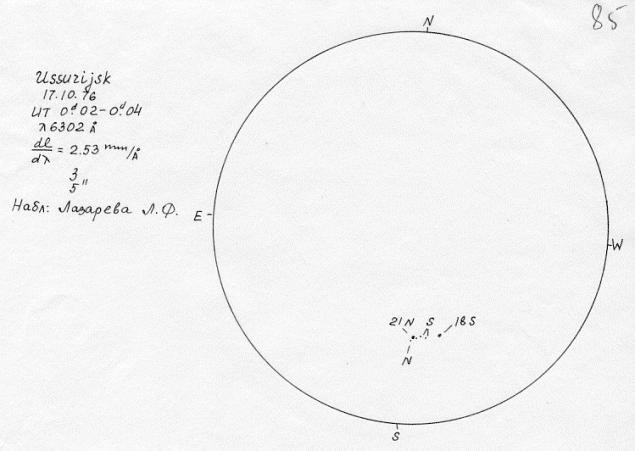 85
N
Ussurijsk
17.10.76
UT 0.ᵈ02-0.ᵈ04
λ6302 Å
dl/dλ = 2.53 mm/Å
3
5"
Набл: Лазарева Л.Ф.
E
W
21N S 18S
N
S